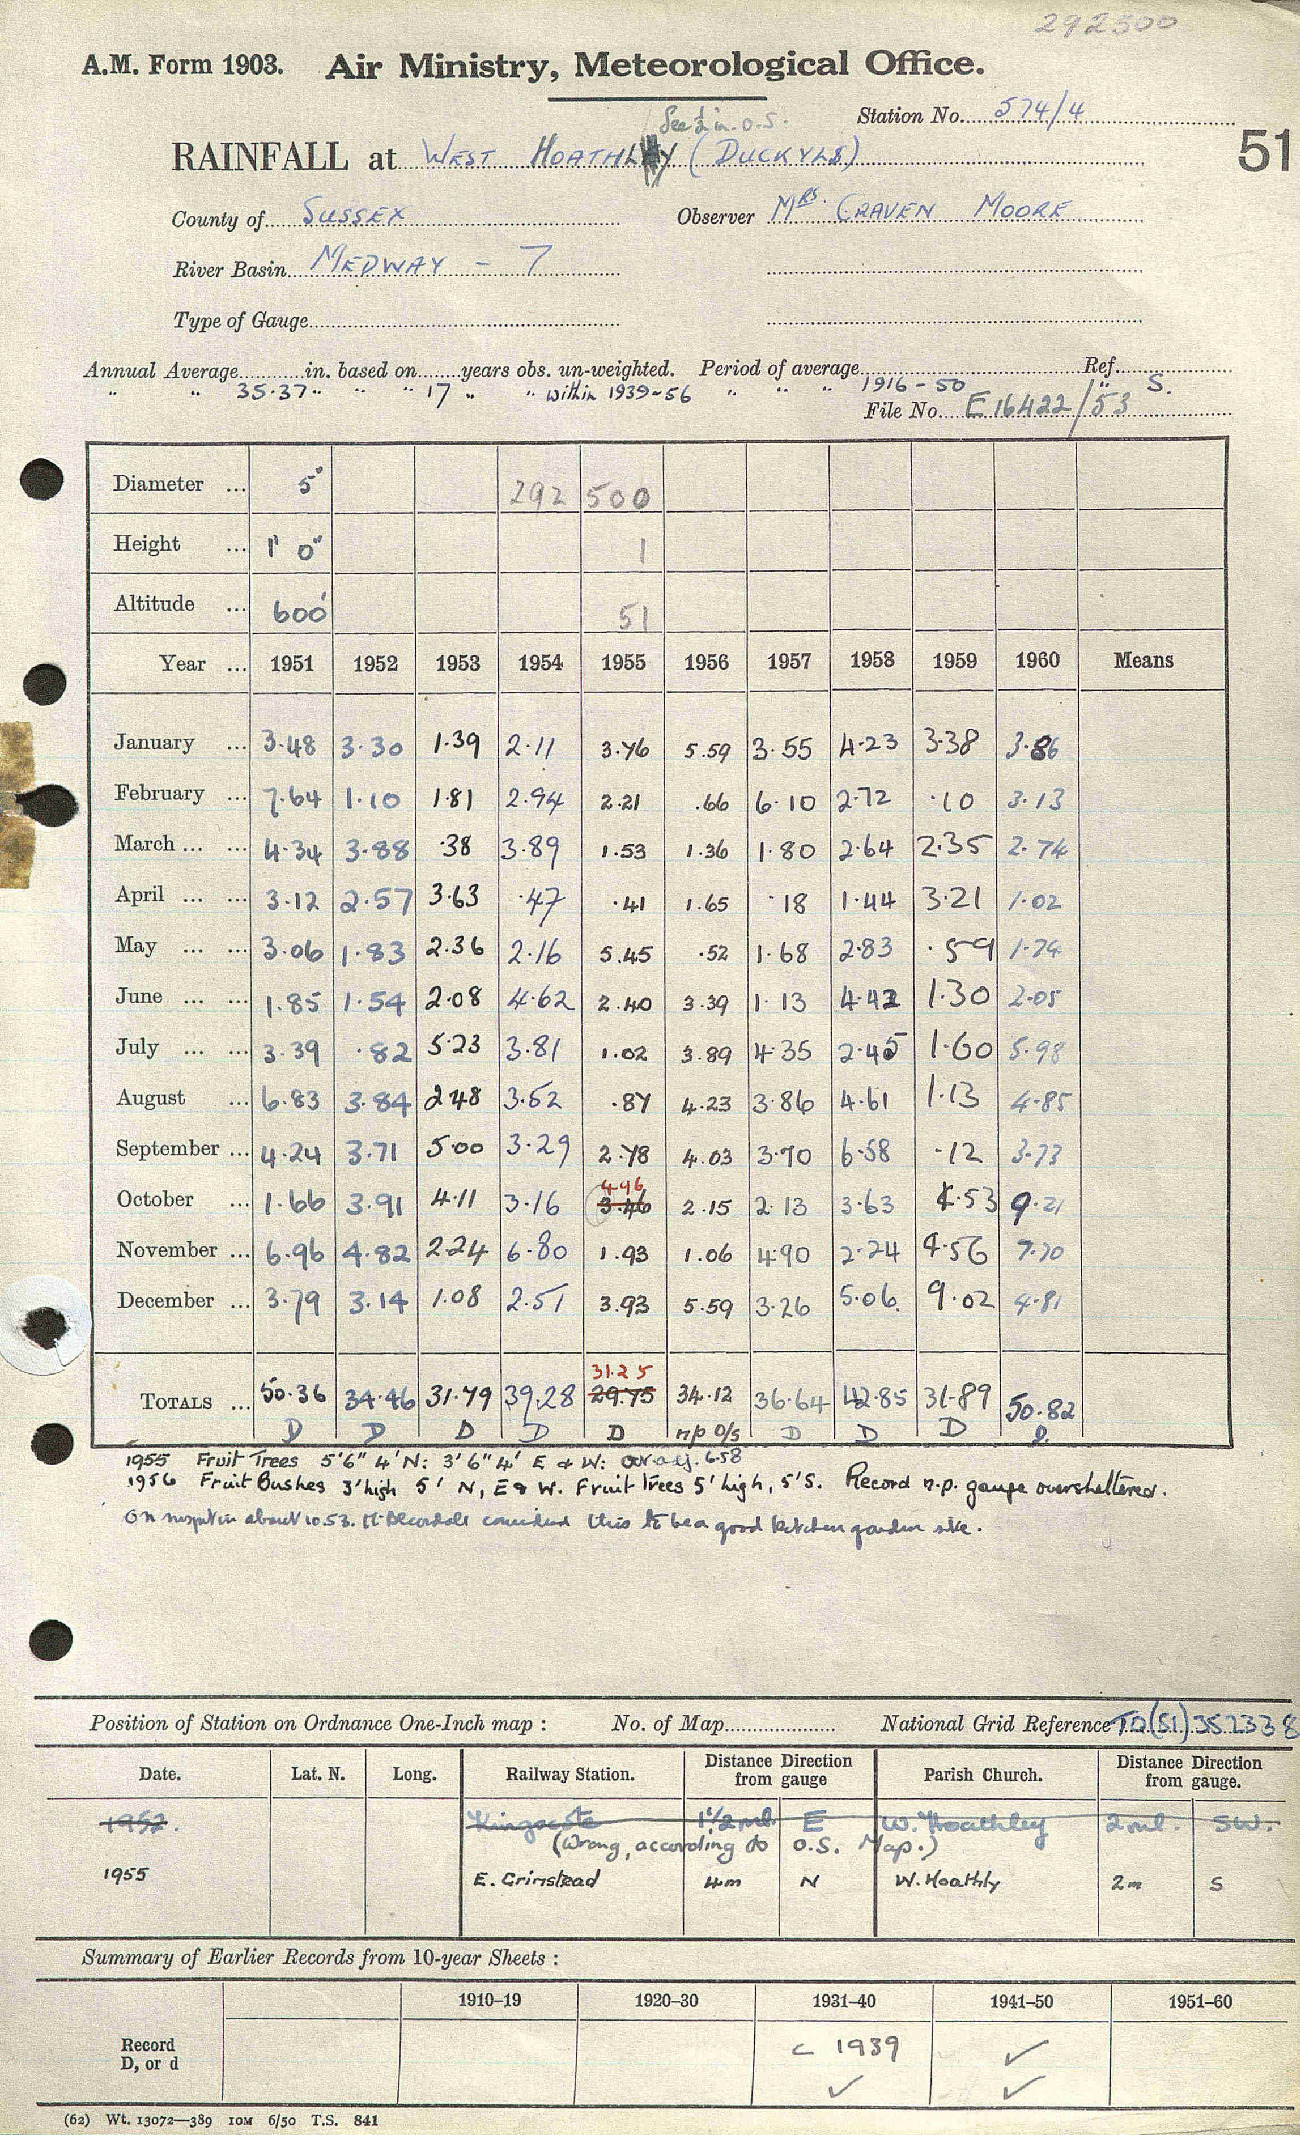 292500
A.M. Form 1903. Air Ministry, Meteorological Office.
See ½ in. O.S.
Station No. 574/4
51
RAINFALL at WEST HOATHLY (DUCKYLS)
County of SUSSEX Observer MRS. CRAVEN MOORE
River Basin MEDWAY - 7
Type of Gauge
Annual Average in. based on years obs. un-weighted. Period of average Ref.
" " 35.37 " " " 17 " " within 1939-56 " " " 1916-50 " S.
File No. E 16422/53
Diameter ... 5" 292 500
Height ... 1' 0" 1
Altitude ... 600' 51
Year ... 1951 1952 1953 1954 1955 1956 1957 1958 1959 1960 Means
January ... 3.48 3.30 1.39 2.11 3.76 5.59 3.55 4.23 3.38 3.86
February ... 7.64 1.10 1.81 2.94 2.21 .66 6.10 2.72 .10 3.13
March ... ... 4.34 3.88 .38 3.89 1.53 1.36 1.80 2.64 2.35 2.74
April ... ... 3.12 2.57 3.63 .47 .41 1.65 .18 1.44 3.21 1.02
May ... ... 3.06 1.83 2.36 2.16 5.45 .52 1.68 2.83 .59 1.74
June ... ... 1.85 1.54 2.08 4.62 2.40 3.39 1.13 4.42 1.30 2.05
July ... ... 3.39 .82 5.23 3.81 1.02 3.89 4.35 2.45 1.60 5.98
August ... 6.83 3.84 2.48 3.52 .87 4.23 3.86 4.61 1.13 4.85
September ... 4.24 3.71 5.00 3.29 2.78 4.03 3.70 6.58 .12 3.73
4.96
October ... 1.66 3.91 4.11 3.16 3.46 2.15 2.13 3.63 4.53 9.21
November ... 6.96 4.82 2.24 6.80 1.93 1.06 4.90 2.24 4.56 7.70
December ... 3.79 3.14 1.08 2.51 3.93 5.59 3.26 5.06 9.02 4.81
31.25
TOTALS ... 50.36 34.46 31.79 39.28 29.75 34.12 36.64 42.85 31.89 50.82
D D D D D n/p O/S D D D D.
1955 Fruit Trees 5'6" 4' N: 3'6" 4' E & W: adj. 6.58
1956 Fruit Bushes 3' high 5' N, E & W. Fruit Trees 5' high, 5' S. Record n.p. gauge oversheltered.
On about 10.53. considered this to be a good kitchen garden site.
Position of Station on Ordnance One-Inch map : No. of Map National Grid Reference TQ(51)352338
Date. Lat. N. Long. Railway Station. Distance Direction from gauge Parish Church. Distance Direction from gauge.
1952. Kingscote 1½ ml. E W. Hoathley 2 ml. SW.
(Wrong, according to O.S. Map.)
1955 E. Grinstead 4m N W. Hoathly 2m S
Summary of Earlier Records from 10-year Sheets :
1910–19 1920–30 1931–40 1941–50 1951–60
Record c 1939 ✓
D, or d ✓ ✓
(62) Wt. 13072—389 10M 6/50 T.S. 841